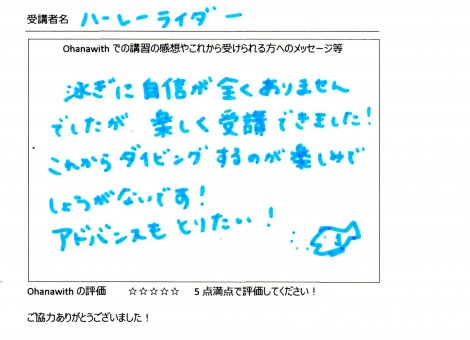 受講者名 ハーレーライダー
Ohanawith での講習の感想やこれから受けられる方へのメッセージ等
泳ぎに自信が全くありません
でしたが 楽しく受講できました!
これからダイビングするのが楽しみで
しょうがないです!
アドバンスもとりたい!
Ohanawith の評価 ☆☆☆☆☆ 5 点満点で評価してください!
ご協力ありがとうございました!